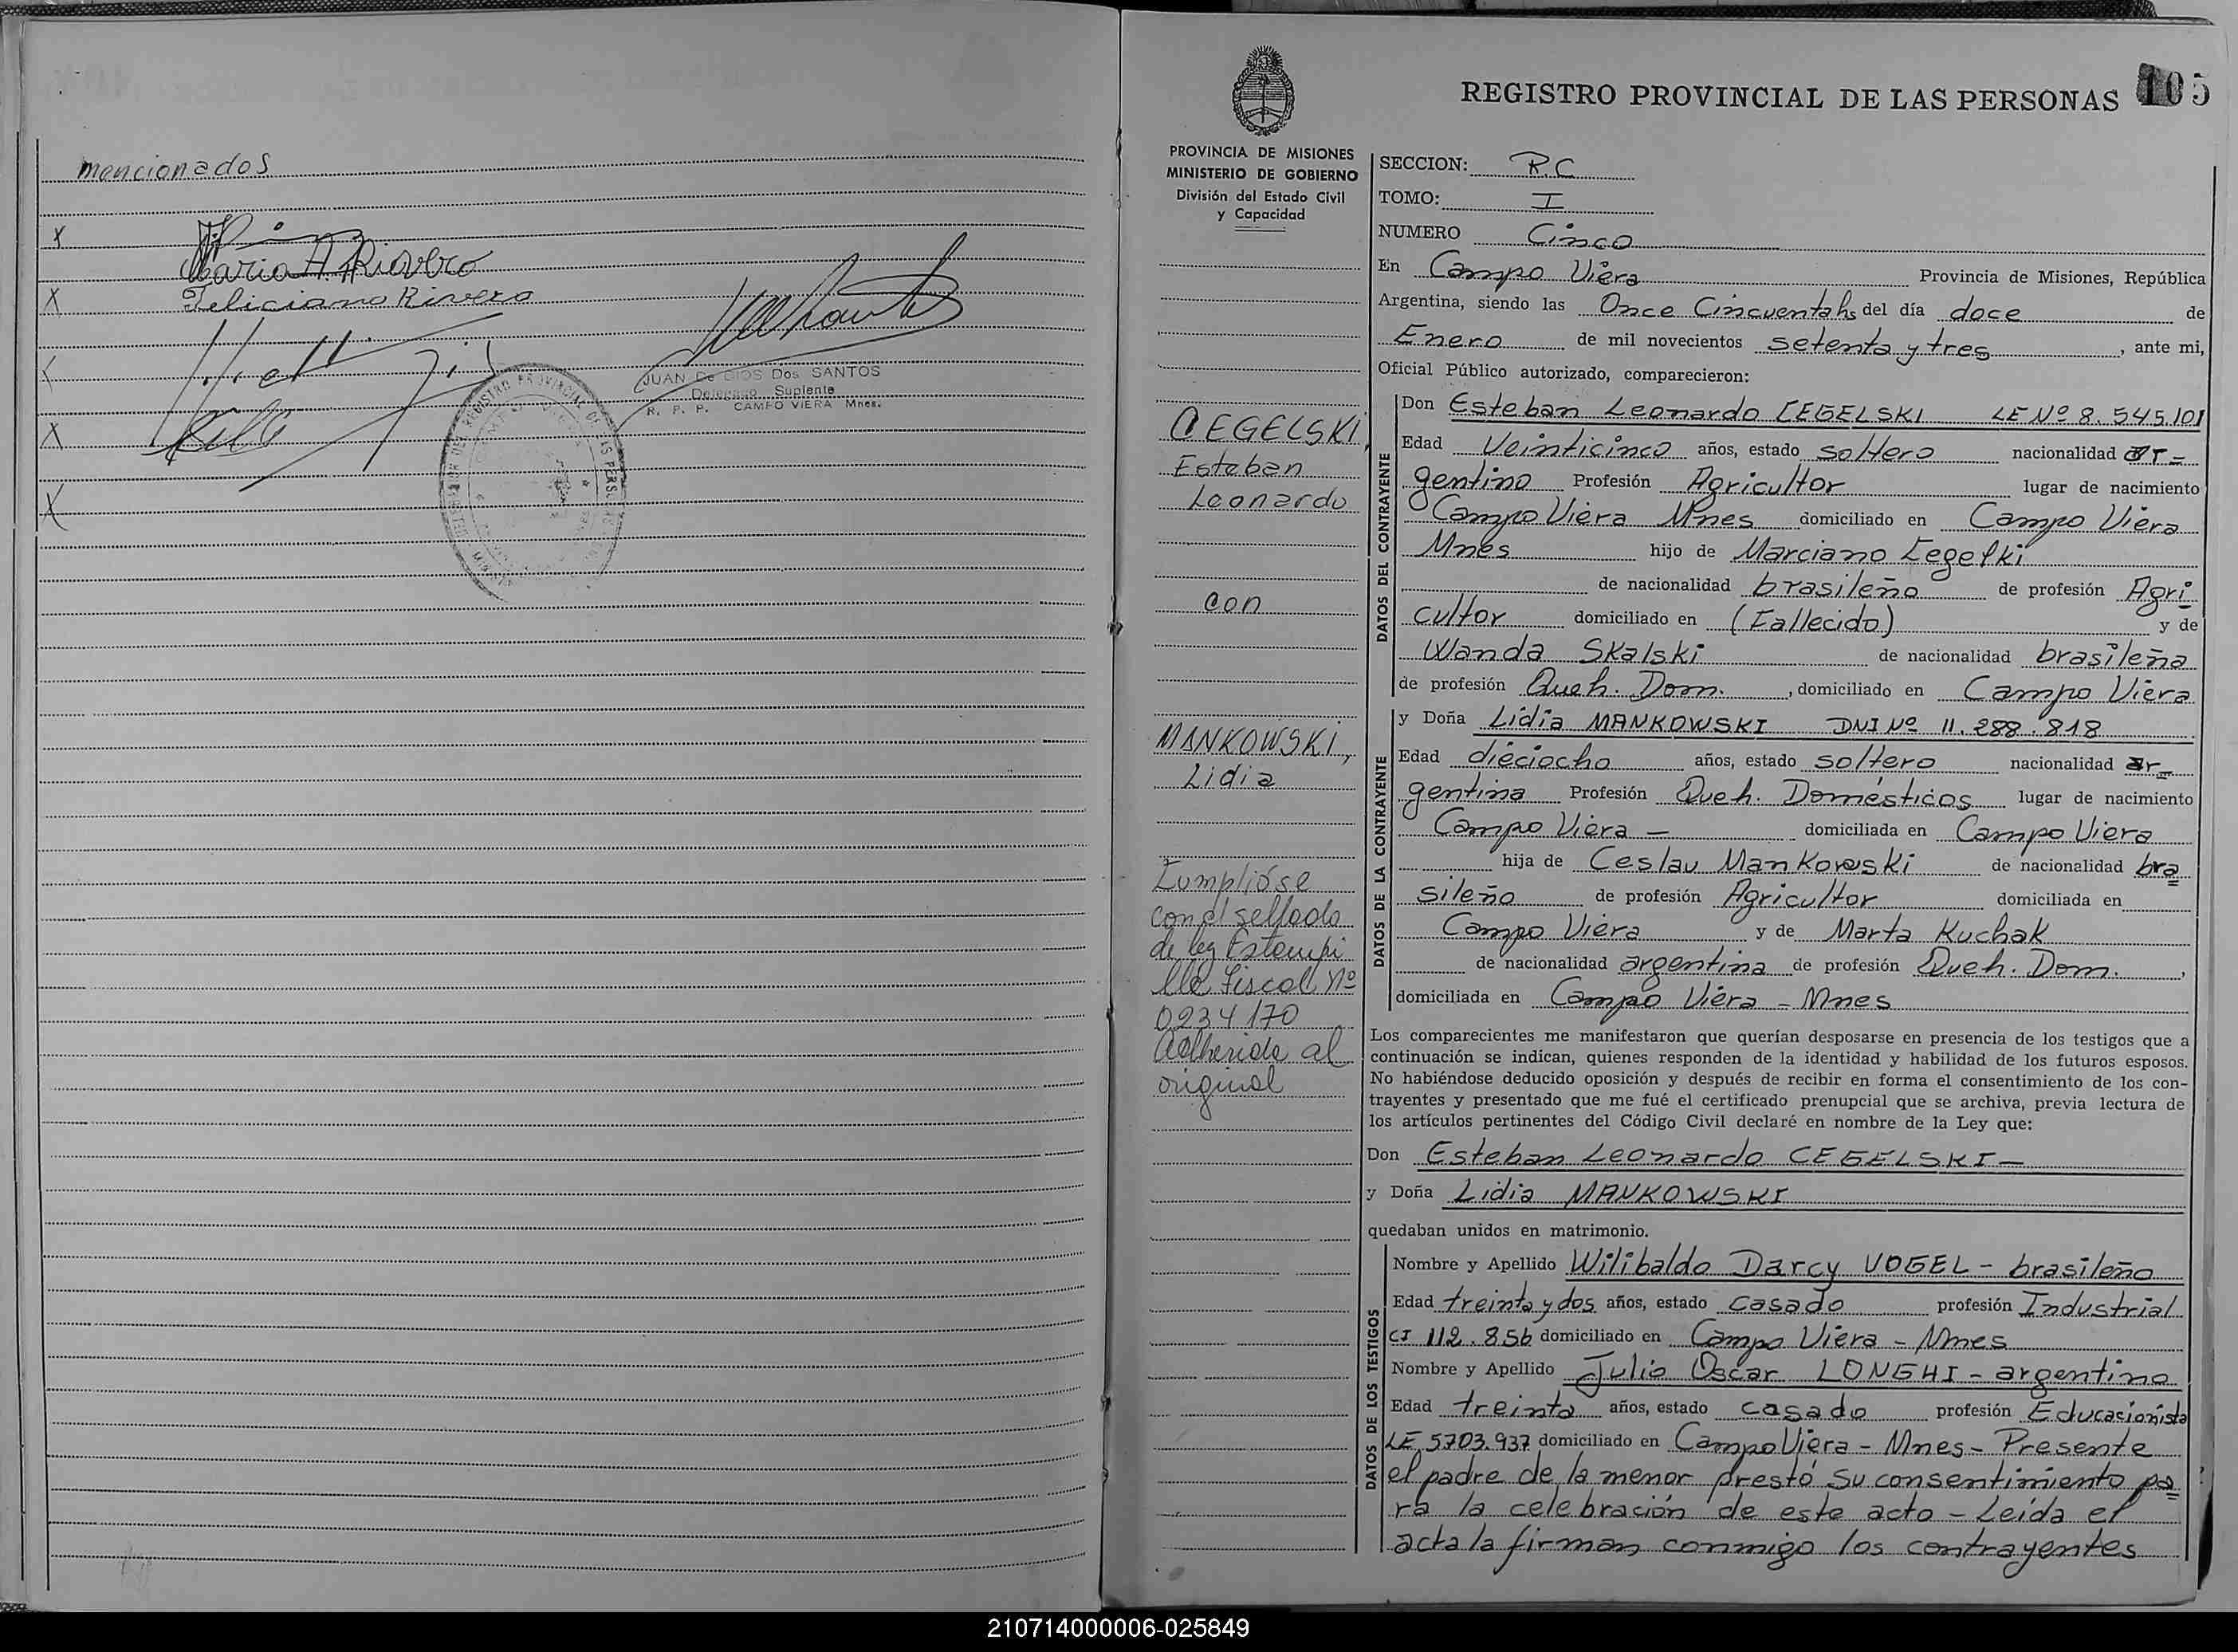 mencionados
X
Maria A. Riovero
X Feliciano Rivero
X
X
X
JUAN De DIOS Dos SANTOS
Delegado Suplente
R. P. P. CAMPO VIERA Mnes.
REGISTRO PROVINCIAL DE LAS PERSONAS 105
PROVINCIA DE MISIONES
MINISTERIO DE GOBIERNO
División del Estado Civil
y Capacidad
CEGELSKI,
Esteban
Leonardo
con
MANKOWSKI,
Lidia
Cumplióse
con el sellado
de ley Estampi
lla Fiscal Nº
0234170
Adherida al
original
SECCION: R.C
TOMO: I
NUMERO Cinco
En Campo Viera Provincia de Misiones, República
Argentina, siendo las Once Cincuenta hs del día doce de
Enero de mil novecientos setenta y tres, ante mi,
Oficial Público autorizado, comparecieron:
DATOS DEL CONTRAYENTE
Don Esteban Leonardo CEGELSKI LE Nº 8.545.101
Edad Veinticinco años, estado soltero nacionalidad ar=
gentino Profesión Agricultor lugar de nacimiento
Campo Viera Mnes domiciliado en Campo Viera
Mnes hijo de Marciano Cegelki
de nacionalidad brasileño de profesión Agri
cultor domiciliado en (Fallecido) y de
Wanda Skalski de nacionalidad brasileña
de profesión Queh. Dom., domiciliado en Campo Viera
DATOS DE LA CONTRAYENTE
y Doña Lidia MANKOWSKI DNI Nº 11.288.818
Edad dieciocho años, estado soltero nacionalidad ar=
gentina Profesión Queh. Domésticos lugar de nacimiento
Campo Viera — domiciliada en Campo Viera
hija de Ceslau Mankowski de nacionalidad bra
sileño de profesión Agricultor domiciliada en
Campo Viera y de Marta Kuchak
de nacionalidad argentina de profesión Queh. Dom.,
domiciliada en Campo Viera - Mnes
Los comparecientes me manifestaron que querían desposarse en presencia de los testigos que a
continuación se indican, quienes responden de la identidad y habilidad de los futuros esposos.
No habiéndose deducido oposición y después de recibir en forma el consentimiento de los con-
trayentes y presentado que me fué el certificado prenupcial que se archiva, previa lectura de
los artículos pertinentes del Código Civil declaré en nombre de la Ley que:
Don Esteban Leonardo CEGELSKI —
y Doña Lidia MANKOWSKI
quedaban unidos en matrimonio.
DATOS DE LOS TESTIGOS
Nombre y Apellido Wilibaldo Darcy VOGEL - brasileño
Edad treinta y dos años, estado casado profesión Industrial
CI 112.856 domiciliado en Campo Viera - Mnes
Nombre y Apellido Julio Oscar LONGHI - argentino
Edad treinta años, estado casado profesión Educacionista
LE 5703.937 domiciliado en Campo Viera - Mnes - Presente
el padre de la menor prestó su consentimiento pa
ra la celebración de este acto - Leída el
acta la firman conmigo los contrayentes
210714000006-025849